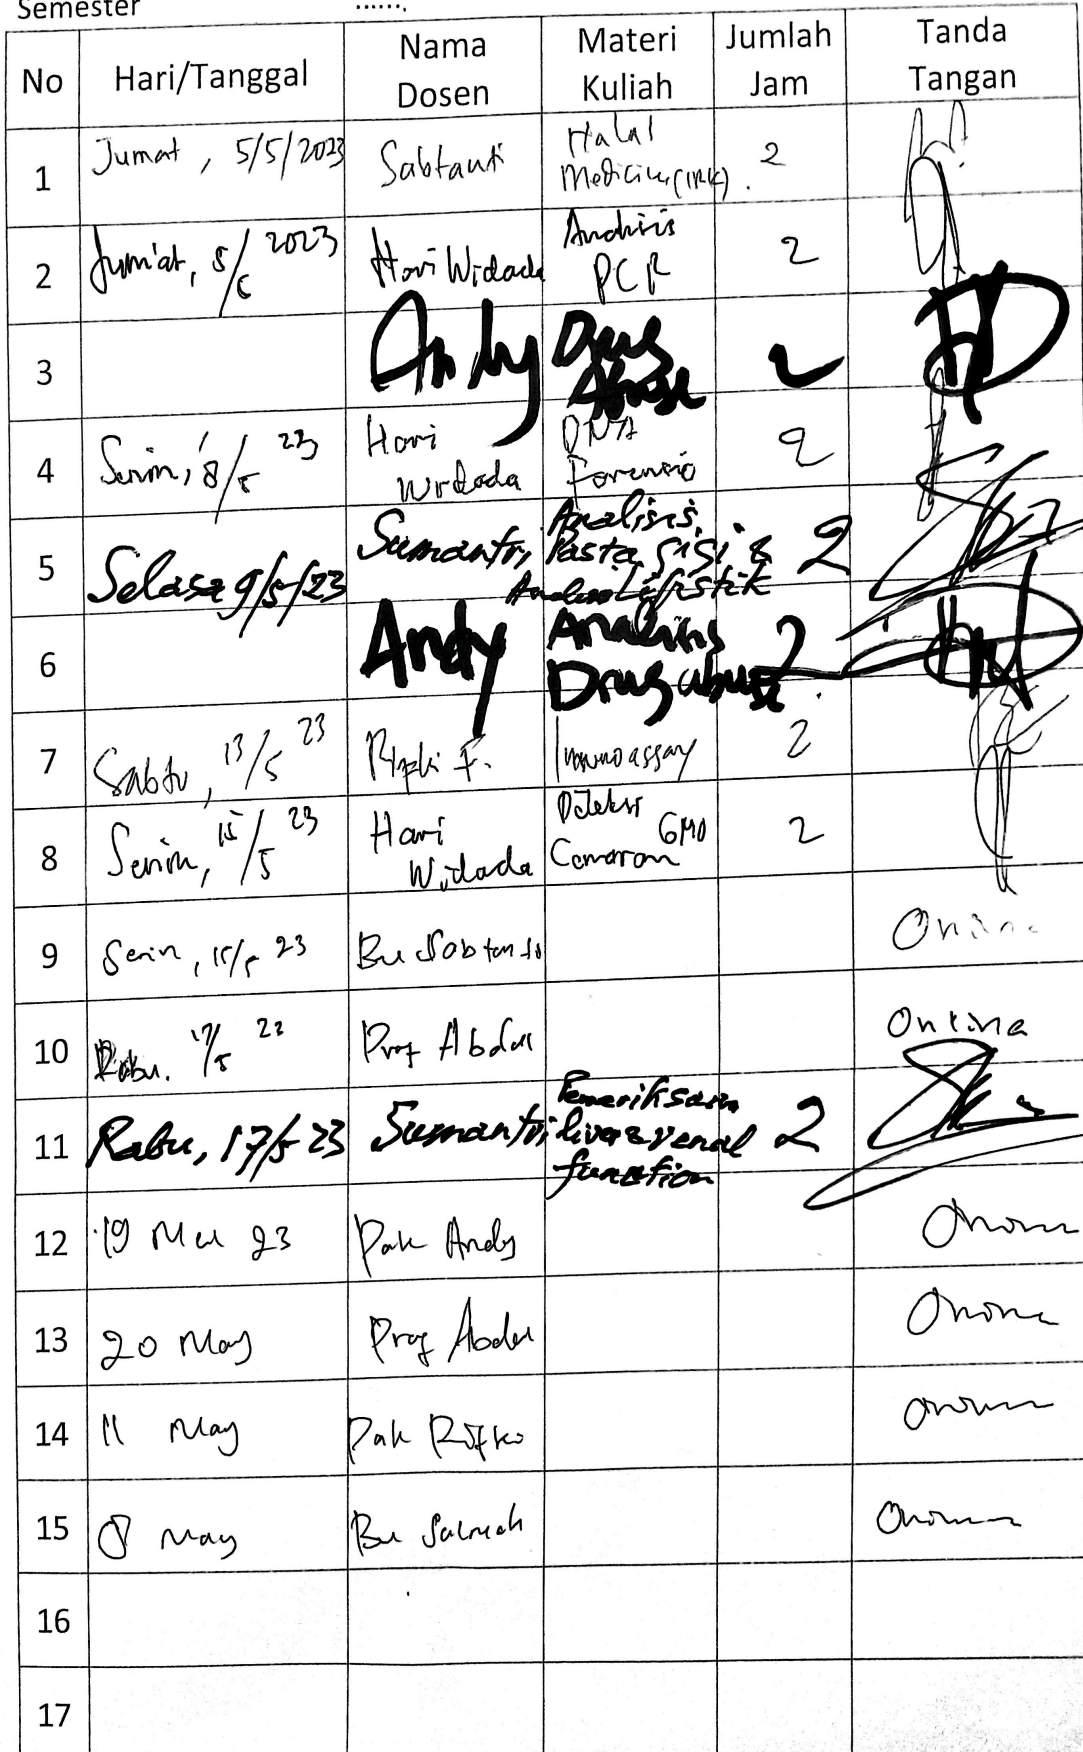 Semester ......
No Hari/Tanggal Nama Dosen Materi Kuliah Jumlah Jam Tanda Tangan
1 Jumat, 5/5/2023 Sabtanti Halal Medicine (IRK). 2
2 Jum'at, 5/5 2023 Hari Widada Analisis PCR 2
3 Andy Drug Abuse 2
4 Senin, 8/5 23 Hari Widada DNA Forensic 2
5 Selasa 9/5/23 Sumantri, Analisis Pasta gigi & Analisis Lipstik 2
6 Andy Analisis Drug abuse 2
7 Sabtu, 13/5 23 F. Immunoassay 2
8 Senin, 15/5 23 Hari Widada Deteksi Cemaran GMO 2
9 Senin, 15/5 23 Bu Sabtanti Online
10 Rabu. 17/5 23 Prof Abdul Online
11 Rabu, 17/5 23 Sumantri Pemeriksaan liver & renal function 2
12 19 Mei 23 Pak Andy Online
13 20 May Prof Abdul Online
14 11 May Pak Online
15 8 May Bu Online
16
17